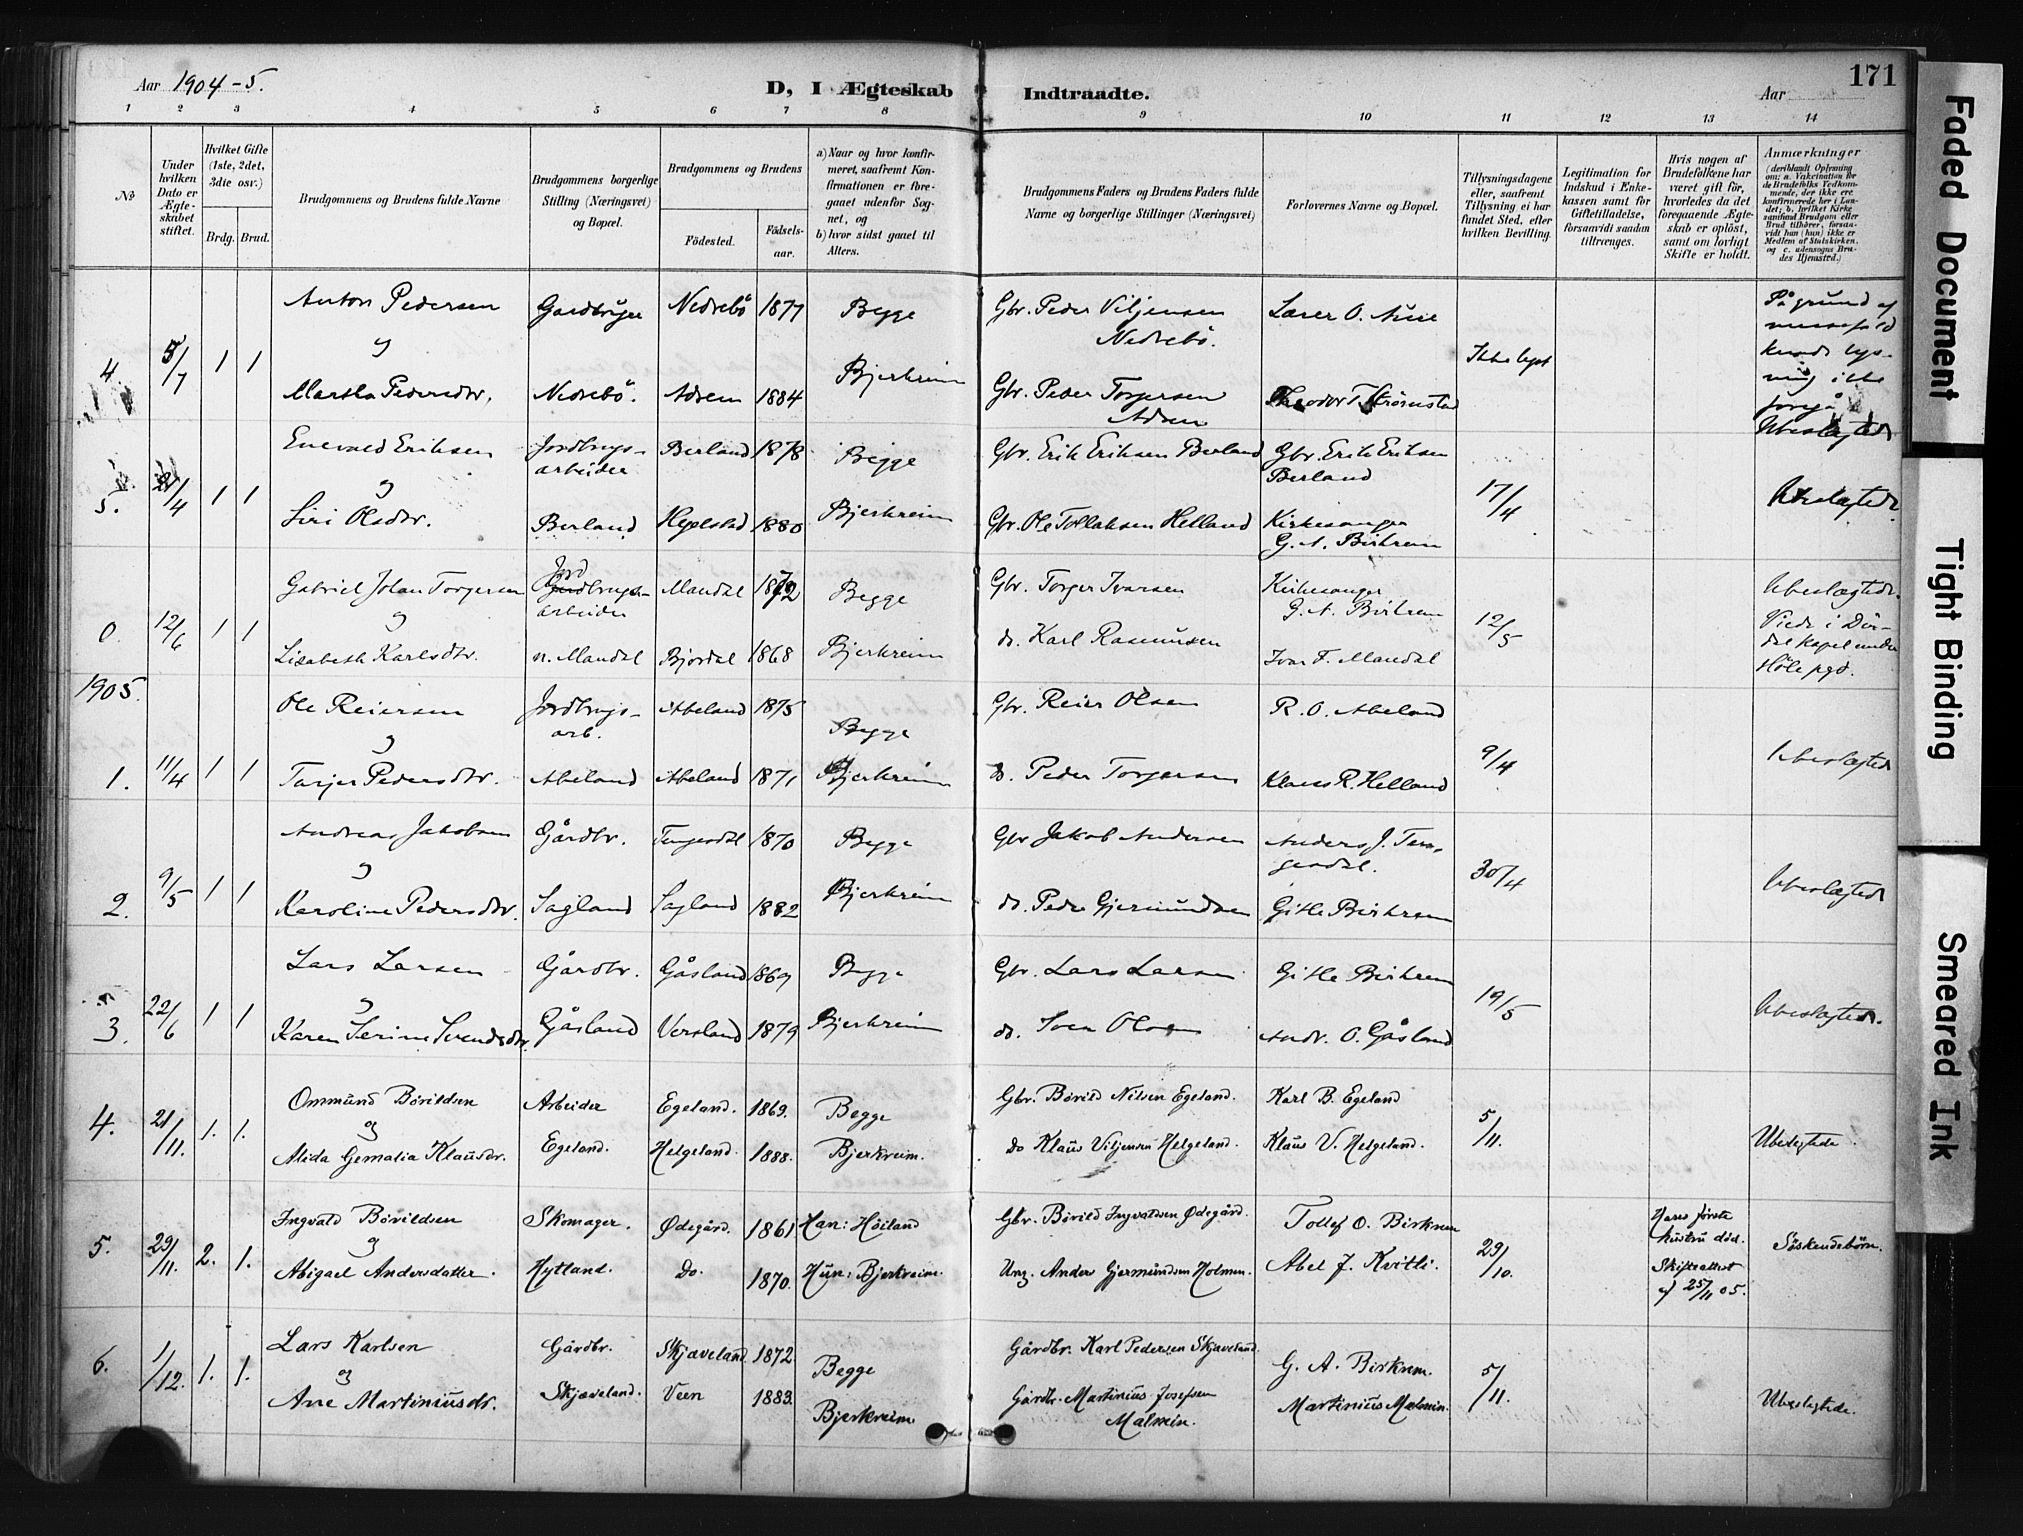 171
Aar 1904-5.
D, I Ægteskab Indtraadte.
Aar
1 2 3 4 5 6 7 8 9 10 11 12 13 14
No
Under hvilken Dato er Ægteskabet stiftet.
Hvilket Gifte (1ste, 2det, 3die osv.)
Brdg. Brud.
Brudgommens og Brudens fulde Navne
Brudgommens borgerlige Stilling (Næringsvei) og Bopæl.
Brudgommens og Brudens
Födested.
Födsels-aar.
a) Naar og hvor konfirmeret, saafremt Konfirmationen er foregaaet udenfor Sognet, og
b) hvor sidst gaaet til Alters.
Brudgommens Faders og Brudens Faders fulde Navne og borgerlige Stillinger (Næringsvei)
Forlovernes Navne og Bopæl.
Tillysningsdagene eller, saafremt Tillysning ei har fundet Sted, efter hvilken Bevilling.
Legitimation for Indskud i Enkekassen samt for Giftetilladelse, forsaavidt saadan tiltrænges.
Hvis nogen af Brudefolkene har været gift för, hvorledes da det foregaaende Ægteskab er oplöst, samt om lovligt Skifte er holdt.
Anmærkninger (deriblandt Oplysning om: a. Vakcination for de Brudefolks Vedkommende, der ikke ere konfirmerede her i Landet; b. hvilket Kirkesamfund Brudgom eller Brud tilhörer, forsaavidt han (hun) ikke er Medlem af Statskirken, og c. udensogns Brudes Hjemsted.)
4. 5/7 1 1 Anton Pedersen Nedrebö 1877 Begge Gbr. Peder Viljensen Nedrebö. Lærer O. Aure Ikke lyst På grund af
og
Martha Pedersdtr. Nedrebö. Adsen 1884 Bjerkreim Gbr. Peder Torgersen Adsen Theodor T. Strömstad
Ubeslægtede
5. 21/4 1 1 Enevald Eriksen Jordbrugs-arbeider Berland 1878 Begge Gbr. Erik Eriksen Berland Gbr. Erik Eriksen Berland 17/4 Ubeslægtede.
og
Siri Olsdtr. Berland 1880 Bjerkreim Gbr. Ole Tollaksen Helland Kirkesanger G. A. Birkrem
12/6 1 1 Gabriel Johan Torgersen Jordbrugs-arbeider Mandal 1872 Begge Gbr. Torger Ivarsen Kirkesanger G. A. Birkrem 12/5 Ubeslægtede. Viede i Dirdal kapel under Höle pgd.
og
Lisabeth Karlsdtr. n. Mandal Bjordal 1868 Bjerkreim do. Karl Rasmussen Ivar F. Mandal
1905.
1. 11/4 1 1 Ole Reiersen Jordbrugs-arb. Abeland 1875 Begge Gbr. Reier Olsen R. O. Abeland 9/4 Ubeslægtede
og
Tarjer Pedersdtr. Abeland Abeland 1871 Bjerkreim do. Peder Torgersen Klaus R. Helland
2. 9/5 1 1 Andreas Jakobsen Gårdbr. Tengesdal 1870 Begge Gbr Jakob Andersen Anders J. Tengesdal. 30/4 Ubeslægtede
og
Karoline Pedersdtr. Sagland Sagland 1882 Bjerkreim do. Peder Gjermundsen Gitle Birkrem
3. 22/6 1 1 Lars Larsen Gårdbr. Gåsland 1869 Begge Gbr. Lars Larsen Gitle Birkrem 19/5 Ubeslægtede.
og
Karen Serine Svendsdtr. Gåsland Versland 1879 Bjerkreim do. Sven Olsen Andr. O. Gåsland
4. 21/11. 1. 1. Ommund Börildsen Arbeider Egeland. 1869. Begge Gbr. Börild Nilsen Egeland. Karl B. Egeland 5/11. Ubeslegtede.
og
Alida Gemalia Klausdr. Egeland. Helgeland. 1888. Bjerkreim. Do Klaus Viljensen Helgeland. Klaus V. Helgeland.
5. 29/11. 2. 1. Ingvald Börildsen Skomager. Ødegård. 1861 Han: Höiland Gbr. Börild Ingvaldsen Ødegård. Tollef O. Birkrem 29/10. Hans förste hustru död. Skifteattest af 25/11 05. Söskendebörn.
og
Abigael Andersdatter. Hytland. Do. 1870. Hun: Bjerkreim. Ung. Anders Gjermundsen Holmen. Abel J. Kvitli.
6. 1/12. 1. 1. Lars Karlsen Gårdbr. Skjæveland 1872 Begge Gårdbr. Karl Pedersen Skjæveland. G. A. Birkrem. 5/11. Ubeslegtede.
og
Ane Martiniusdr. Skjæveland. Veen 1883. Bjerkreim Gårdbr. Martinius Josefsen Malmin. Martinius Malmin.
Faded Document
Tight Binding
Smeared Ink